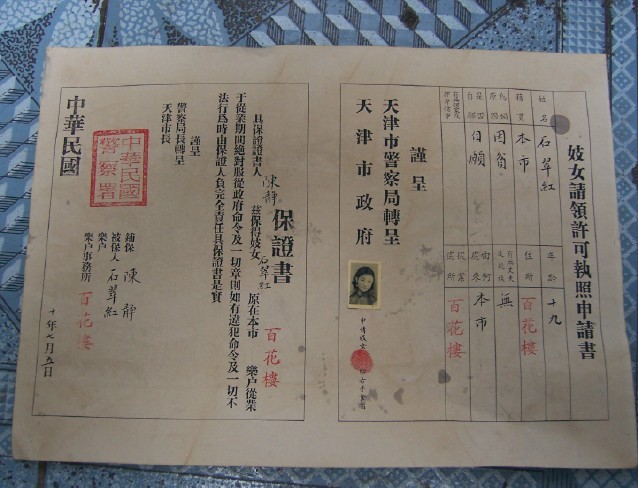 妓女請領許可執照申請書
姓名 石翠紅 年齡 十九
籍貫 本市 住所 百花樓
為娼原因 因貧 有無丈夫及親族 無
是否自願 自願 由何處來 本市
從業處所 百花樓
謹呈
天津市警察局轉呈
天津市政府
保證書
具保證書人 陳靜 茲保得妓女 石翠紅 原在本市 百花樓 樂户從業
于從業期間絕對服從政府命令及一切章則如有違犯命令及一切不
法行為時由保證人負完全責任具保證書是實
謹呈
警察局長轉呈
天津市長
鋪保 陳靜
被保人 石翠紅
樂户
樂户事務所 百花樓
中華民國
警察署
中華民國
十年七月五日